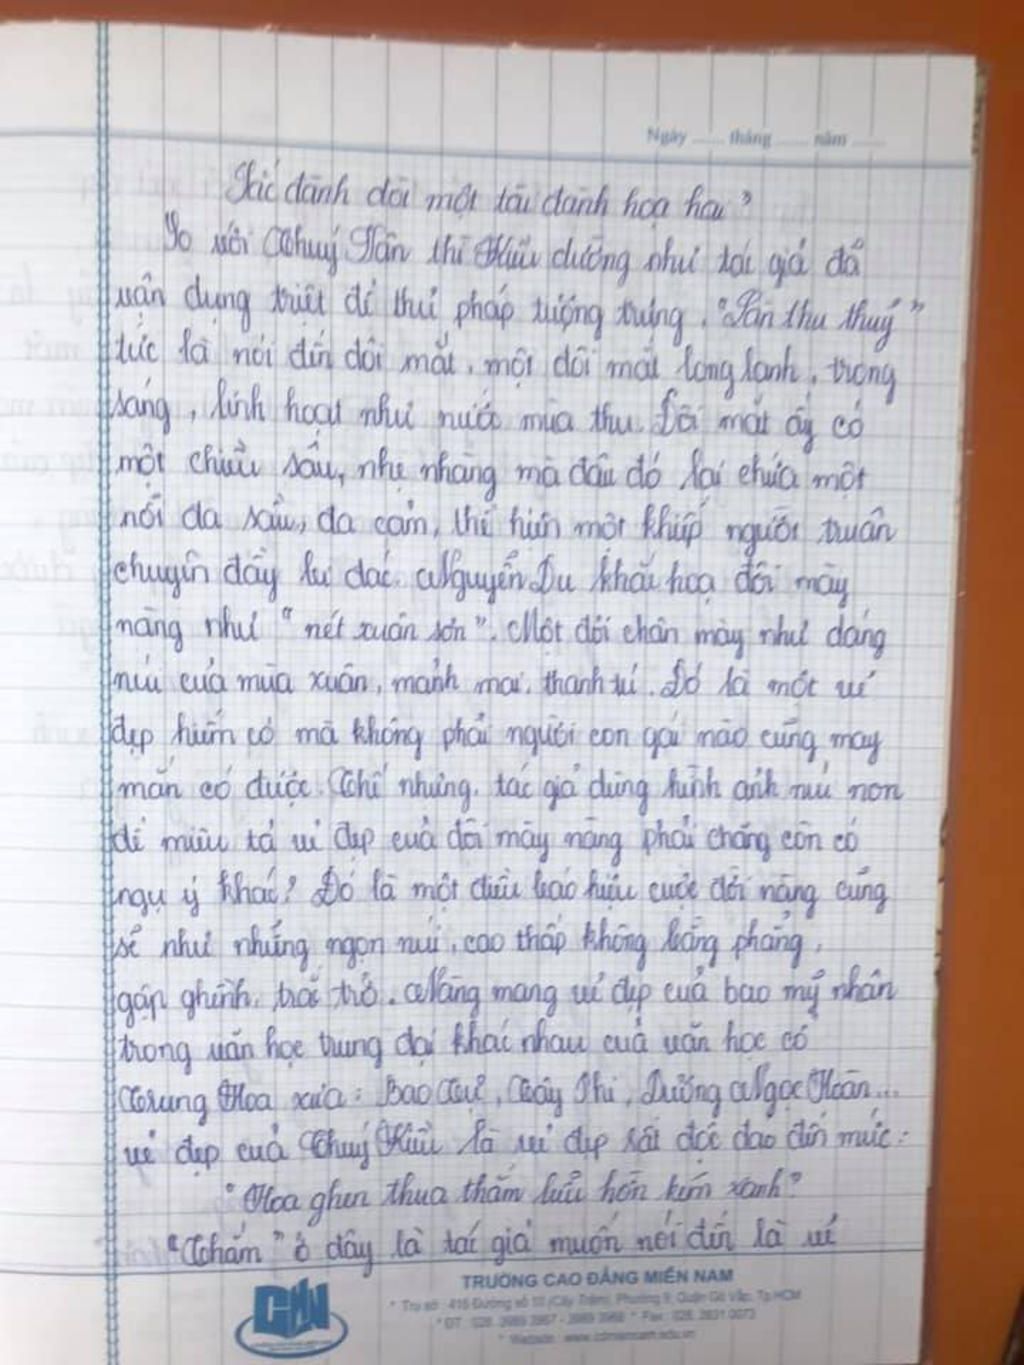 Ngày ...... tháng ...... năm ......
Sắc đành đòi một tài đành họa hai"
So với Thuý Vân thì Kiều dường như tác giả đã
vận dụng triệt để thư pháp tượng trưng. "Làn thu thuỷ"
tức là nói đến đôi mắt, một đôi mắt long lanh, trong
sáng, linh hoạt như nước mùa thu. Đôi mắt ấy có
một chiều sâu, nhẹ nhàng mà đâu đó lại chứa một
nỗi đa sầu, đa cảm, thể hiện một kiếp người truân
chuyên đầy lưu đác. Nguyễn Du khắc hoạ đôi mày
nàng như "nét xuân sơn". Một đôi chân mày như dáng
núi của mùa xuân, mảnh mai, thanh tú. Đó là một vẻ
đẹp hiếm có mà không phải người con gái nào cũng may
mắn có được. Thế nhưng, tác giả dùng hình ảnh núi non
để miêu tả vẻ đẹp của đôi mày nàng phải chăng còn có
ngụ ý khác? Đó là một điều báo hiệu cuộc đời nàng cũng
sẽ như những ngọn núi, cao thấp không bằng phẳng,
gập ghềnh, trắc trở. Nàng mang vẻ đẹp của bao mỹ nhân
trong văn học trung đại khác nhau của văn học cổ
Trung Hoa xưa: Bao Tự, Tây Thi, Dương Ngọc Hoàn...
vẻ đẹp của Thuý Kiều là vẻ đẹp rất độc đáo đến mức:
"Hoa ghen thua thắm liễu hờn kém xanh"
"Thắm" ở đây là tác giả muốn nói đến là vẻ
TRƯỜNG CAO ĐẲNG MIỀN NAM
* Trụ sở : 416 Đường số 10 (Cây Trâm), Phường 9, Quận Gò Vấp, Tp.HCM
* ĐT : 028. 3989 * Fax : 028. 3831 0073
* Website : www.cdmiennam.edu.vn